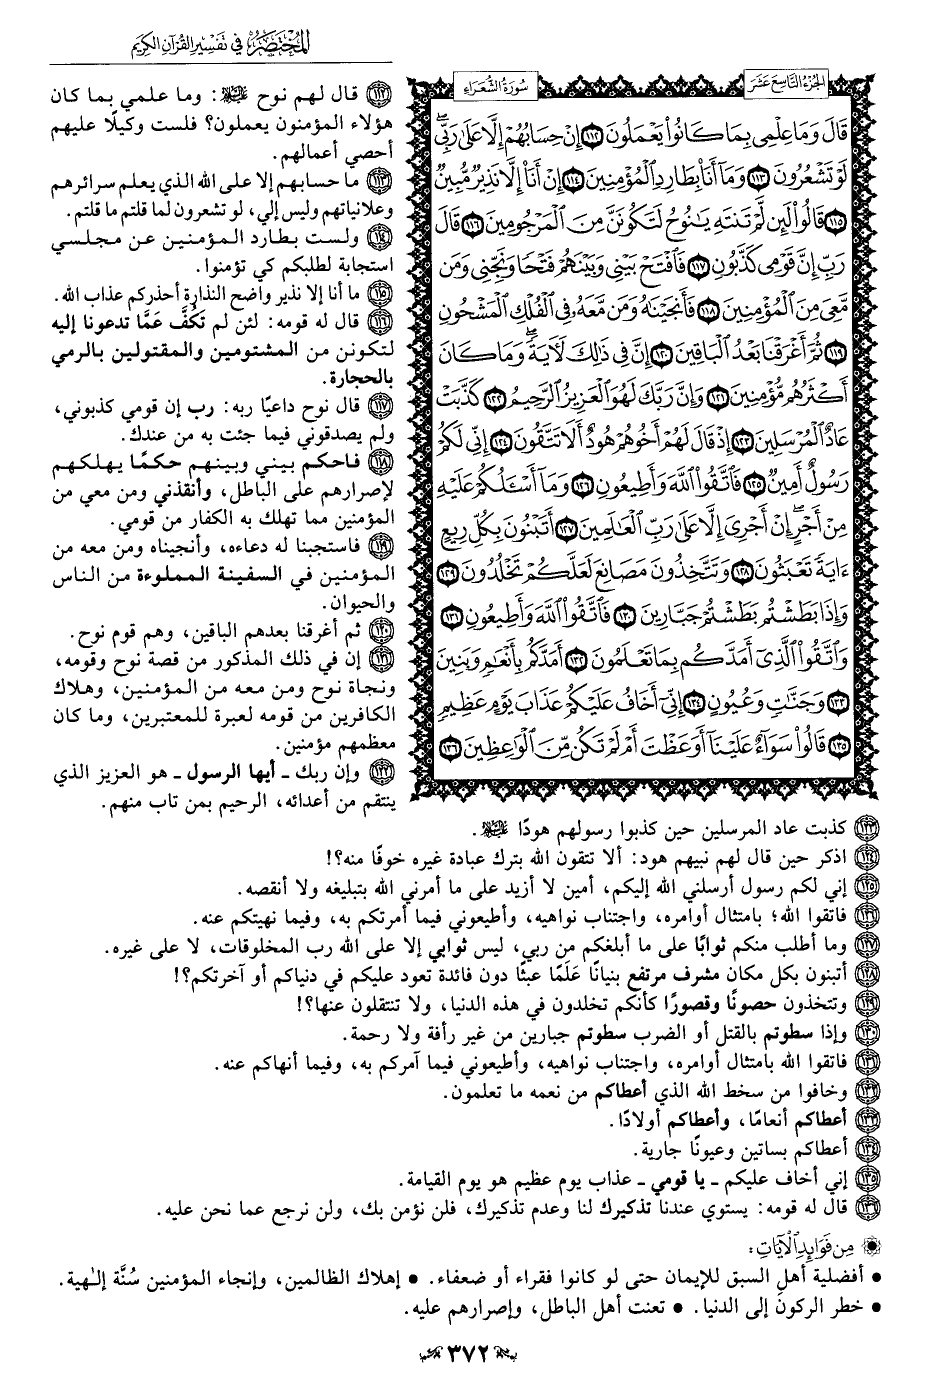 المختصر في تفسير القرآن الكريم
الجزء التاسع عشر
سورة الشعراء
قَالَ وَمَا عِلْمِى بِمَا كَانُوا۟ يَعْمَلُونَ ١١٢ إِنْ حِسَابُهُمْ إِلَّا عَلَىٰ رَبِّى ۖ
لَوْ تَشْعُرُونَ ١١٣ وَمَآ أَنَا۠ بِطَارِدِ ٱلْمُؤْمِنِينَ ١١٤ إِنْ أَنَا۠ إِلَّا نَذِيرٌ مُّبِينٌ
١١٥ قَالُوا۟ لَئِن لَّمْ تَنتَهِ يَـٰنُوحُ لَتَكُونَنَّ مِنَ ٱلْمَرْجُومِينَ ١١٦ قَالَ
رَبِّ إِنَّ قَوْمِى كَذَّبُونِ ١١٧ فَٱفْتَحْ بَيْنِى وَبَيْنَهُمْ فَتْحًا وَنَجِّنِى وَمَن
مَّعِىَ مِنَ ٱلْمُؤْمِنِينَ ١١٨ فَأَنجَيْنَـٰهُ وَمَن مَّعَهُۥ فِى ٱلْفُلْكِ ٱلْمَشْحُونِ
١١٩ ثُمَّ أَغْرَقْنَا بَعْدُ ٱلْبَاقِينَ ١٢٠ إِنَّ فِى ذَٰلِكَ لَـَٔايَةً ۖ وَمَا كَانَ
أَكْثَرُهُم مُّؤْمِنِينَ ١٢١ وَإِنَّ رَبَّكَ لَهُوَ ٱلْعَزِيزُ ٱلرَّحِيمُ ١٢٢ كَذَّبَتْ
عَادٌ ٱلْمُرْسَلِينَ ١٢٣ إِذْ قَالَ لَهُمْ أَخُوهُمْ هُودٌ أَلَا تَتَّقُونَ ١٢٤ إِنِّى لَكُمْ
رَسُولٌ أَمِينٌ ١٢٥ فَٱتَّقُوا۟ ٱللَّهَ وَأَطِيعُونِ ١٢٦ وَمَآ أَسْـَٔلُكُمْ عَلَيْهِ
مِنْ أَجْرٍ ۖ إِنْ أَجْرِىَ إِلَّا عَلَىٰ رَبِّ ٱلْعَـٰلَمِينَ ١٢٧ أَتَبْنُونَ بِكُلِّ رِيعٍ
ءَايَةً تَعْبَثُونَ ١٢٨ وَتَتَّخِذُونَ مَصَانِعَ لَعَلَّكُمْ تَخْلُدُونَ ١٢٩
وَإِذَا بَطَشْتُم بَطَشْتُمْ جَبَّارِينَ ١٣٠ فَٱتَّقُوا۟ ٱللَّهَ وَأَطِيعُونِ ١٣١
وَٱتَّقُوا۟ ٱلَّذِىٓ أَمَدَّكُم بِمَا تَعْلَمُونَ ١٣٢ أَمَدَّكُم بِأَنْعَـٰمٍ وَبَنِينَ
١٣٣ وَجَنَّـٰتٍ وَعُيُونٍ ١٣٤ إِنِّىٓ أَخَافُ عَلَيْكُمْ عَذَابَ يَوْمٍ عَظِيمٍ
١٣٥ قَالُوا۟ سَوَآءٌ عَلَيْنَآ أَوَعَظْتَ أَمْ لَمْ تَكُن مِّنَ ٱلْوَٰعِظِينَ ١٣٦
١١٢ قال لهم نوح ﷺ: وما علمي بما كان
هؤلاء المؤمنون يعملون؟ فلست وكيلًا عليهم
أحصي أعمالهم.
١١٣ ما حسابهم إلا على الله الذي يعلم سرائرهم
وعلانياتهم وليس إلي، لو تشعرون لما قلتم ما قلتم.
١١٤ ولست بطارد المؤمنين عن مجلسي
استجابة لطلبكم كي تؤمنوا.
١١٥ ما أنا إلا نذير واضح النذارة أحذركم عذاب الله.
١١٦ قال له قومه: لئن لم تَكُفَّ عَمَّا تدعونا إليه
لتكونن من المشتومين والمقتولين بالرمي
بالحجارة.
١١٧ قال نوح داعيًا ربه: رب إن قومي كذبوني،
ولم يصدقوني فيما جئت به من عندك.
١١٨ فاحكم بيني وبينهم حكمًا يهلكهم
لإصرارهم على الباطل، وأنقذني ومن معي من
المؤمنين مما تهلك به الكفار من قومي.
١١٩ فاستجبنا له دعاءه، وأنجيناه ومن معه من
المؤمنين في السفينة المملوءة من الناس
والحيوان.
١٢٠ ثم أغرقنا بعدهم الباقين، وهم قوم نوح.
١٢١ إن في ذلك المذكور من قصة نوح وقومه،
ونجاة نوح ومن معه من المؤمنين، وهلاك
الكافرين من قومه لعبرة للمعتبرين، وما كان
معظمهم مؤمنين.
١٢٢ وإن ربك ـ أيها الرسول ـ هو العزيز الذي
ينتقم من أعدائه، الرحيم بمن تاب منهم.
١٢٣ كذبت عاد المرسلين حين كذبوا رسولهم هودًا ﷺ.
١٢٤ اذكر حين قال لهم نبيهم هود: ألا تتقون الله بترك عبادة غيره خوفًا منه؟!
١٢٥ إني لكم رسول أرسلني الله إليكم، أمين لا أزيد على ما أمرني الله بتبليغه ولا أنقصه.
١٢٦ فاتقوا الله؛ بامتثال أوامره، واجتناب نواهيه، وأطيعوني فيما أمرتكم به، وفيما نهيتكم عنه.
١٢٧ وما أطلب منكم ثوابًا على ما أبلغكم من ربي، ليس ثوابي إلا على الله رب المخلوقات، لا على غيره.
١٢٨ أتبنون بكل مكان مشرف مرتفع بنيانًا عَلَمًا عبثًا دون فائدة تعود عليكم في دنياكم أو آخرتكم؟!
١٢٩ وتتخذون حصونًا وقصورًا كأنكم تخلدون في هذه الدنيا، ولا تنتقلون عنها؟!
١٣٠ وإذا سطوتم بالقتل أو الضرب سطوتم جبارين من غير رأفة ولا رحمة.
١٣١ فاتقوا الله بامتثال أوامره، واجتناب نواهيه، وأطيعوني فيما آمركم به، وفيما أنهاكم عنه.
١٣٢ وخافوا من سخط الله الذي أعطاكم من نعمه ما تعلمون.
١٣٣ أعطاكم أنعامًا، وأعطاكم أولادًا.
١٣٤ أعطاكم بساتين وعيونًا جارية.
١٣٥ إني أخاف عليكم ـ يا قومي ـ عذاب يوم عظيم هو يوم القيامة.
١٣٦ قال له قومه: يستوي عندنا تذكيرك لنا وعدم تذكيرك، فلن نؤمن بك، ولن نرجع عما نحن عليه.
من فوائد الآيات:
• أفضلية أهل السبق للإيمان حتى لو كانوا فقراء أو ضعفاء. • إهلاك الظالمين، وإنجاء المؤمنين سُنَّة إلهية.
• خطر الركون إلى الدنيا. • تعنت أهل الباطل، وإصرارهم عليه.
٣٧٢